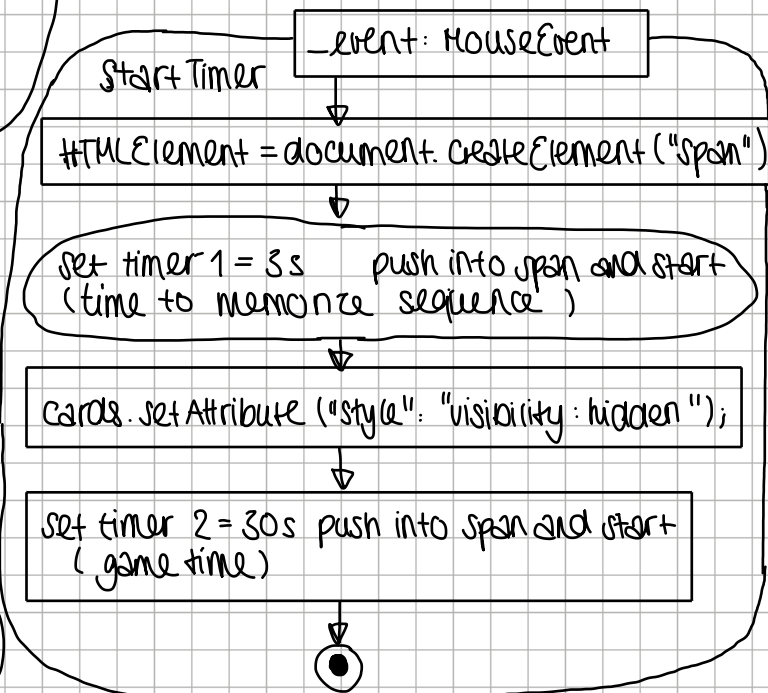 _event: MouseEvent
StartTimer
HTMLElement = document.createElement("span")
set timer 1 = 3s push into span and start
(time to memorize sequence)
cards.setAttribute("style": "visibility: hidden");
set timer 2 = 30s push into span and start
(game time)